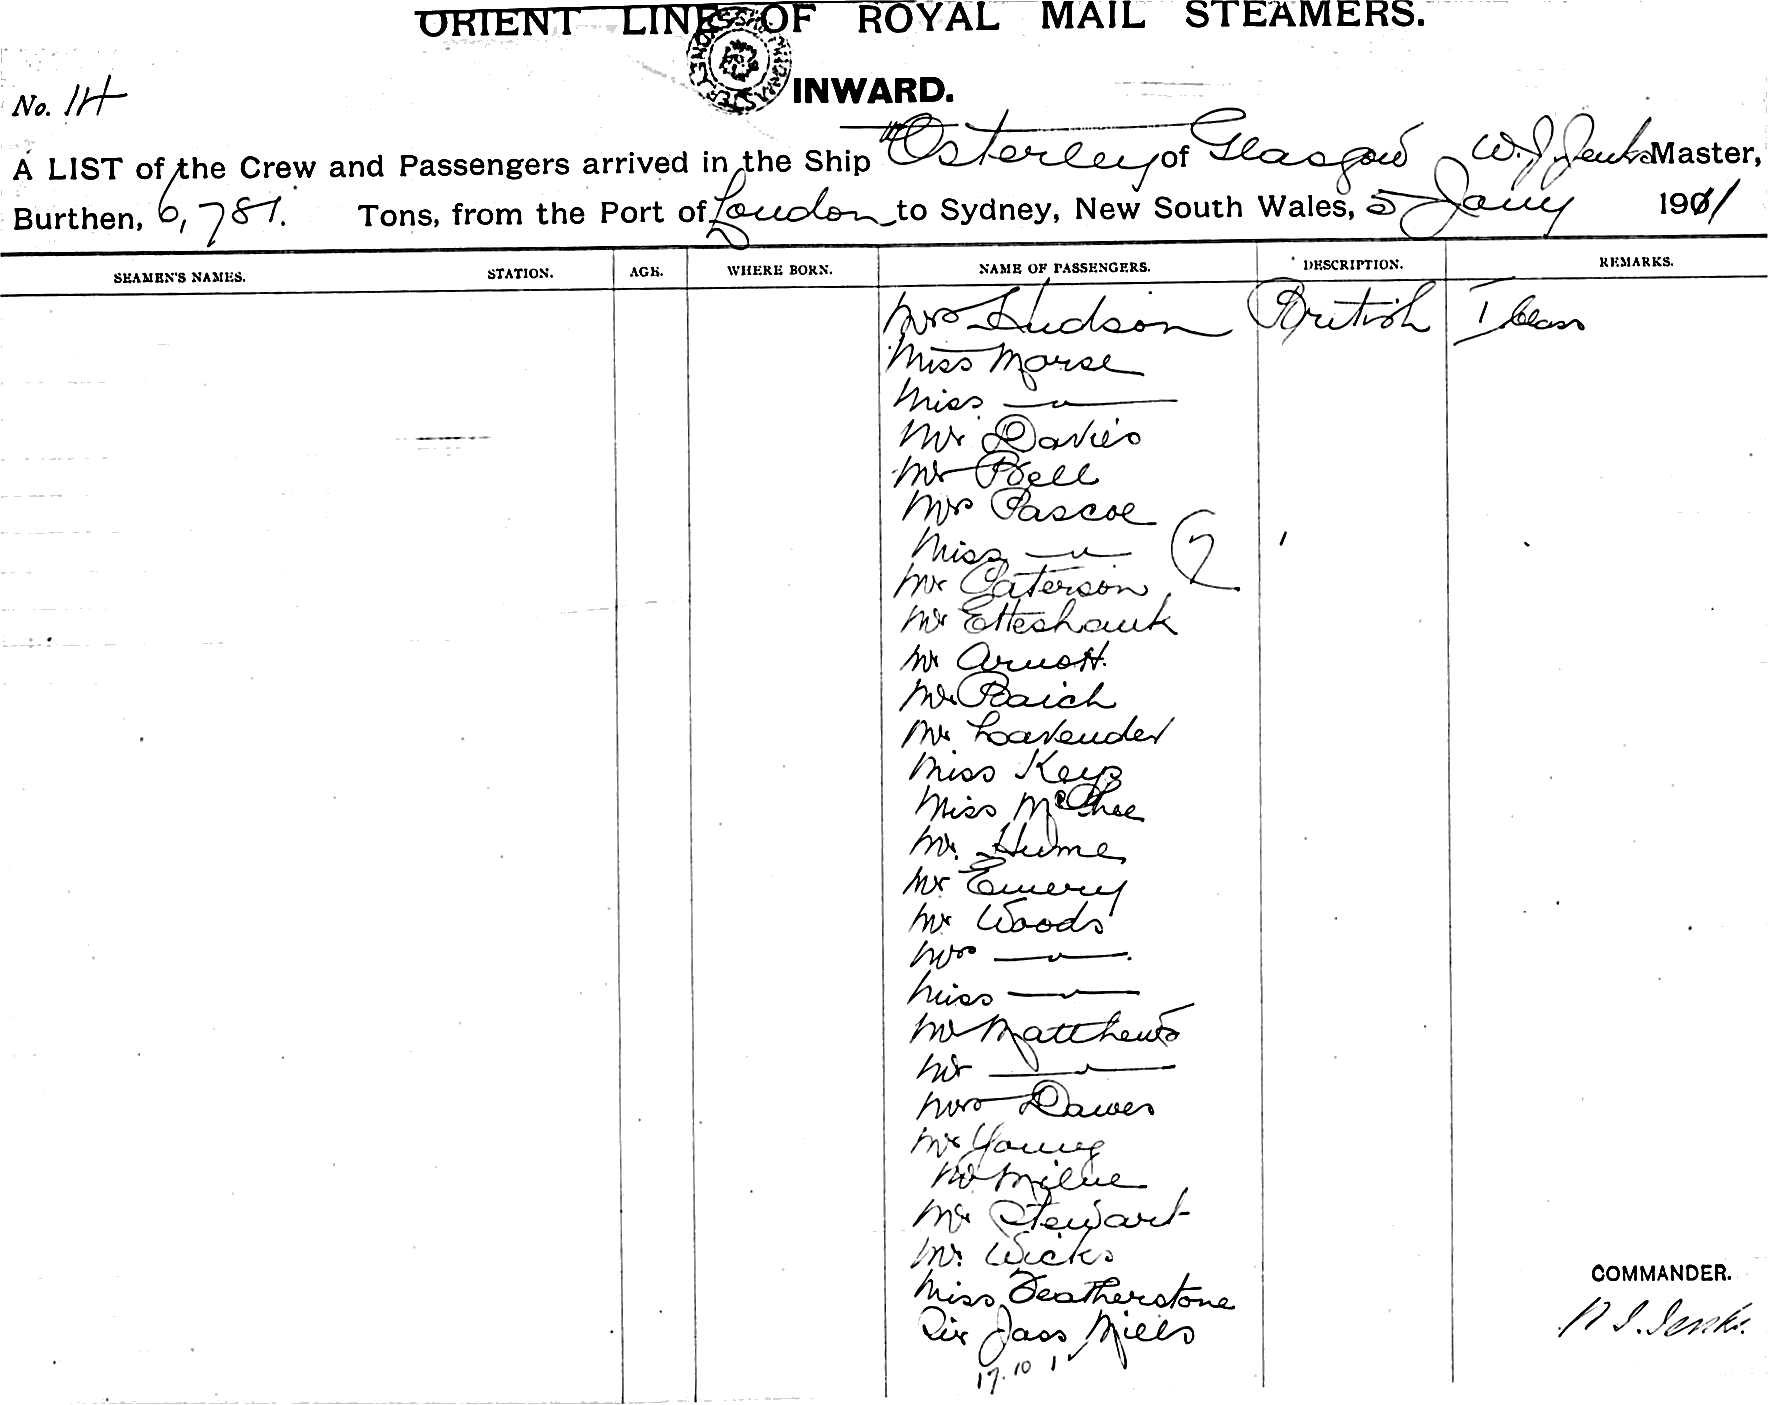 ORIENT LINE OF ROYAL MAIL STEAMERS.
INWARD.
No. 114
A LIST of the Crew and Passengers arrived in the Ship "Osterley of Glasgow W. J. Jenks Master,
Burthen, 6,781. Tons, from the Port of London to Sydney, New South Wales, 5 Jany 1911
SEAMEN'S NAMES. STATION. AGE. WHERE BORN. NAME OF PASSENGERS. DESCRIPTION. REMARKS.
Mrs Hudson British I Class
Miss Morse
Miss — " —
Mr Davies
Mr Bell
Mrs Pascoe
Miss — " —
Mr Paterson
Mr Etteshank
Mr Arnott.
Mr Baich
Mr Lavender
Miss Keys
Miss McPhee
Mr. Hume
Mr Emery
Mr Woods
Mrs — " —
Miss — " —
Mr Matthews
Mr — " —
Mrs Dawes
Mr Young
Mr Milne
Mr Stewart
Mr. Wicks
Miss Featherstone
Sir Jass Mills
17. 10 1
COMMANDER.
Jenks.